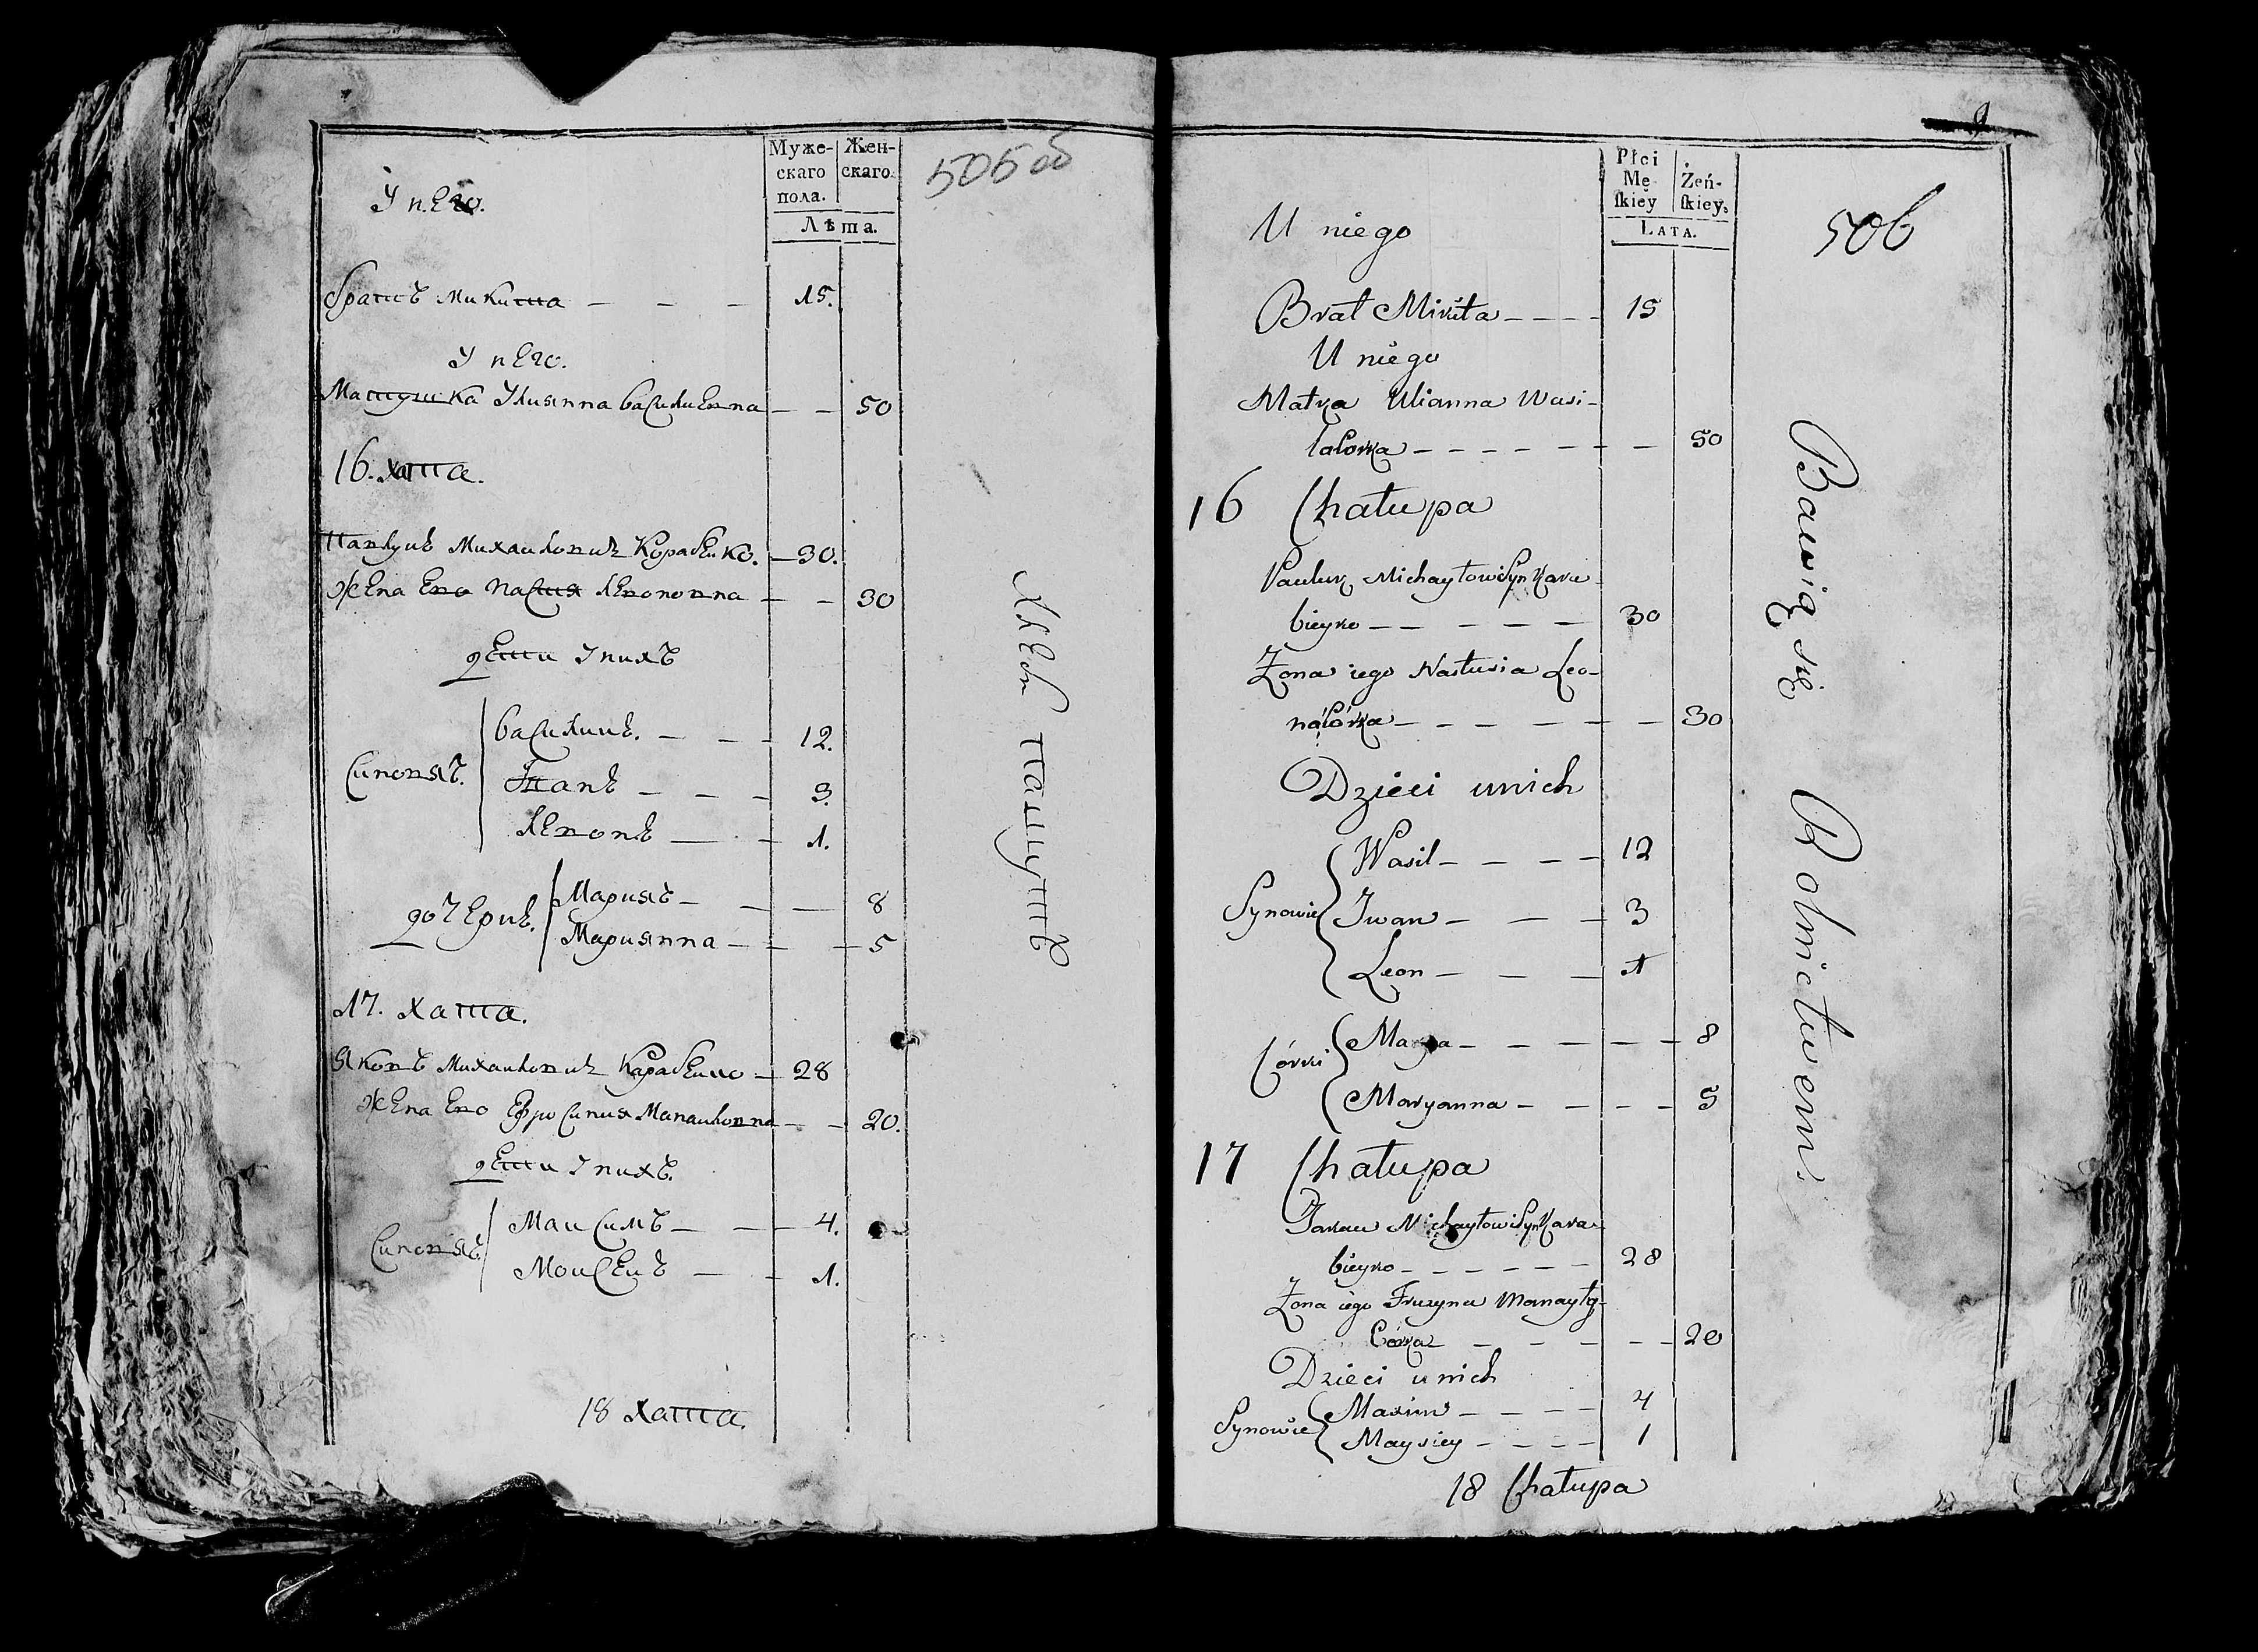 Муже-
скаго
пола.
Жен-
скаго.
Лѣта.
505 об
У него.
братъ Микита — — — 15.
У него.
Матушка Улиянна Василиевна — — 50
16. хата.
Павлукъ Михаиловичъ Корабеико. — 30.
Жена Ево Настия Левоновна — — 30
дети У нихъ
Синовяъ.
Василииъ. — — 12.
Иванъ — — — 3.
Левонъ — — 1.
дочериъ.
Марияъ — — — 8
Мариянна — — — 5
17. хата.
Яковъ Михаиловичъ Карабеико — 28
Жена Ево Ефросиния Манаиловна — — 20.
дети У нихъ.
Синовяъ
Маисимъ — — 4.
Моисеиъ — — 1.
18 хата.
Хлеб пашутъ
Płci
Mę-
ſkiey
Żeń-
ſkiey.
LATA.
506
U niego
Brat Mikita — — — — 15
U niego
Matka Ulianna Wasi-
lalowka — — — — — — — 50
16 Chałupa
Pauluk MichayłowiSyn Kara-
bieyko — — — — — — 30
Żona iego Nastusia Leo-
nácórka — — — — — — 30
Dzieci unich
Synowie
Wasil — — — — 12
Iwan — — — 3
Leon — — — 1
Córki
Marya — — — — — — 8
Maryanna — — — — 5
17 Chałupa
Jakau MichayłowiSyn Kara-
bieyko — — — — — — 28
Żona iego Fruzyna Manayło-
Córka — — — — — 20
Dzieci unich
Synowie
Maxim — — — — 4
Maysiey — — — — 1
18 Chałupa
Bawią się Rolnictwem.